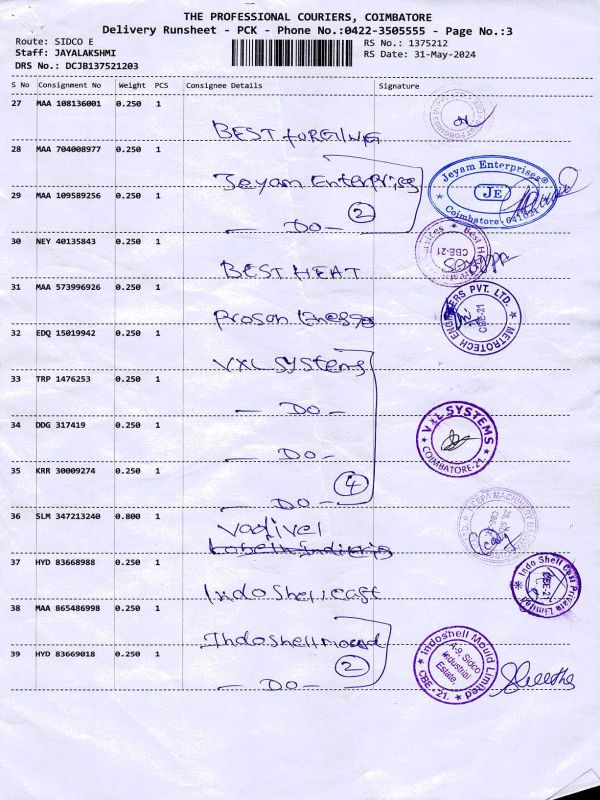 THE PROFESSIONAL COURIERS, COIMBATORE
Delivery Runsheet - PCK - Phone No.:0422-3505555 - Page No.:3
Route: SIDCO E
Staff: JAYALAKSHMI
DRS No.: DCJB137521203
RS No.: 1375212
RS Date: 31-May-2024
S No Consignment No Weight PCS Consignee Details Signature
27 MAA 108136001 0.250 1
BEST FORGING
28 MAA 704008977 0.250 1
Jeyam Enterprises
Jeyam Enterprises®
JE
Coimbatore-641021
29 MAA 109589256 0.250 1
2
— DO —
30 NEY 40135843 0.250 1
BEST HEAT
Best Heat
CBE-21
31 MAA 573996926 0.250 1
METROTECH ENGINEERS PVT. LTD.
CBE-21
32 EDQ 15019942 0.250 1
VXL SYSTEMS
33 TRP 1476253 0.250 1
— DO —
34 DDG 317419 0.250 1
— DO —
VXL SYSTEMS
COIMBATORE-21.
35 KRR 30009274 0.250 1
4
— DO —
36 SLM 347213240 0.800 1
Vadivel
37 HYD 83668988 0.250 1
Indo Shell cast
Indo Shell Cast Private Limited
CBE-21
38 MAA 865486998 0.250 1
Indoshell mould
Indoshell Mould Limited
A-9, Sidco
Industrial
Estate,
CBE - 21.
39 HYD 83669018 0.250 1
2
— DO —